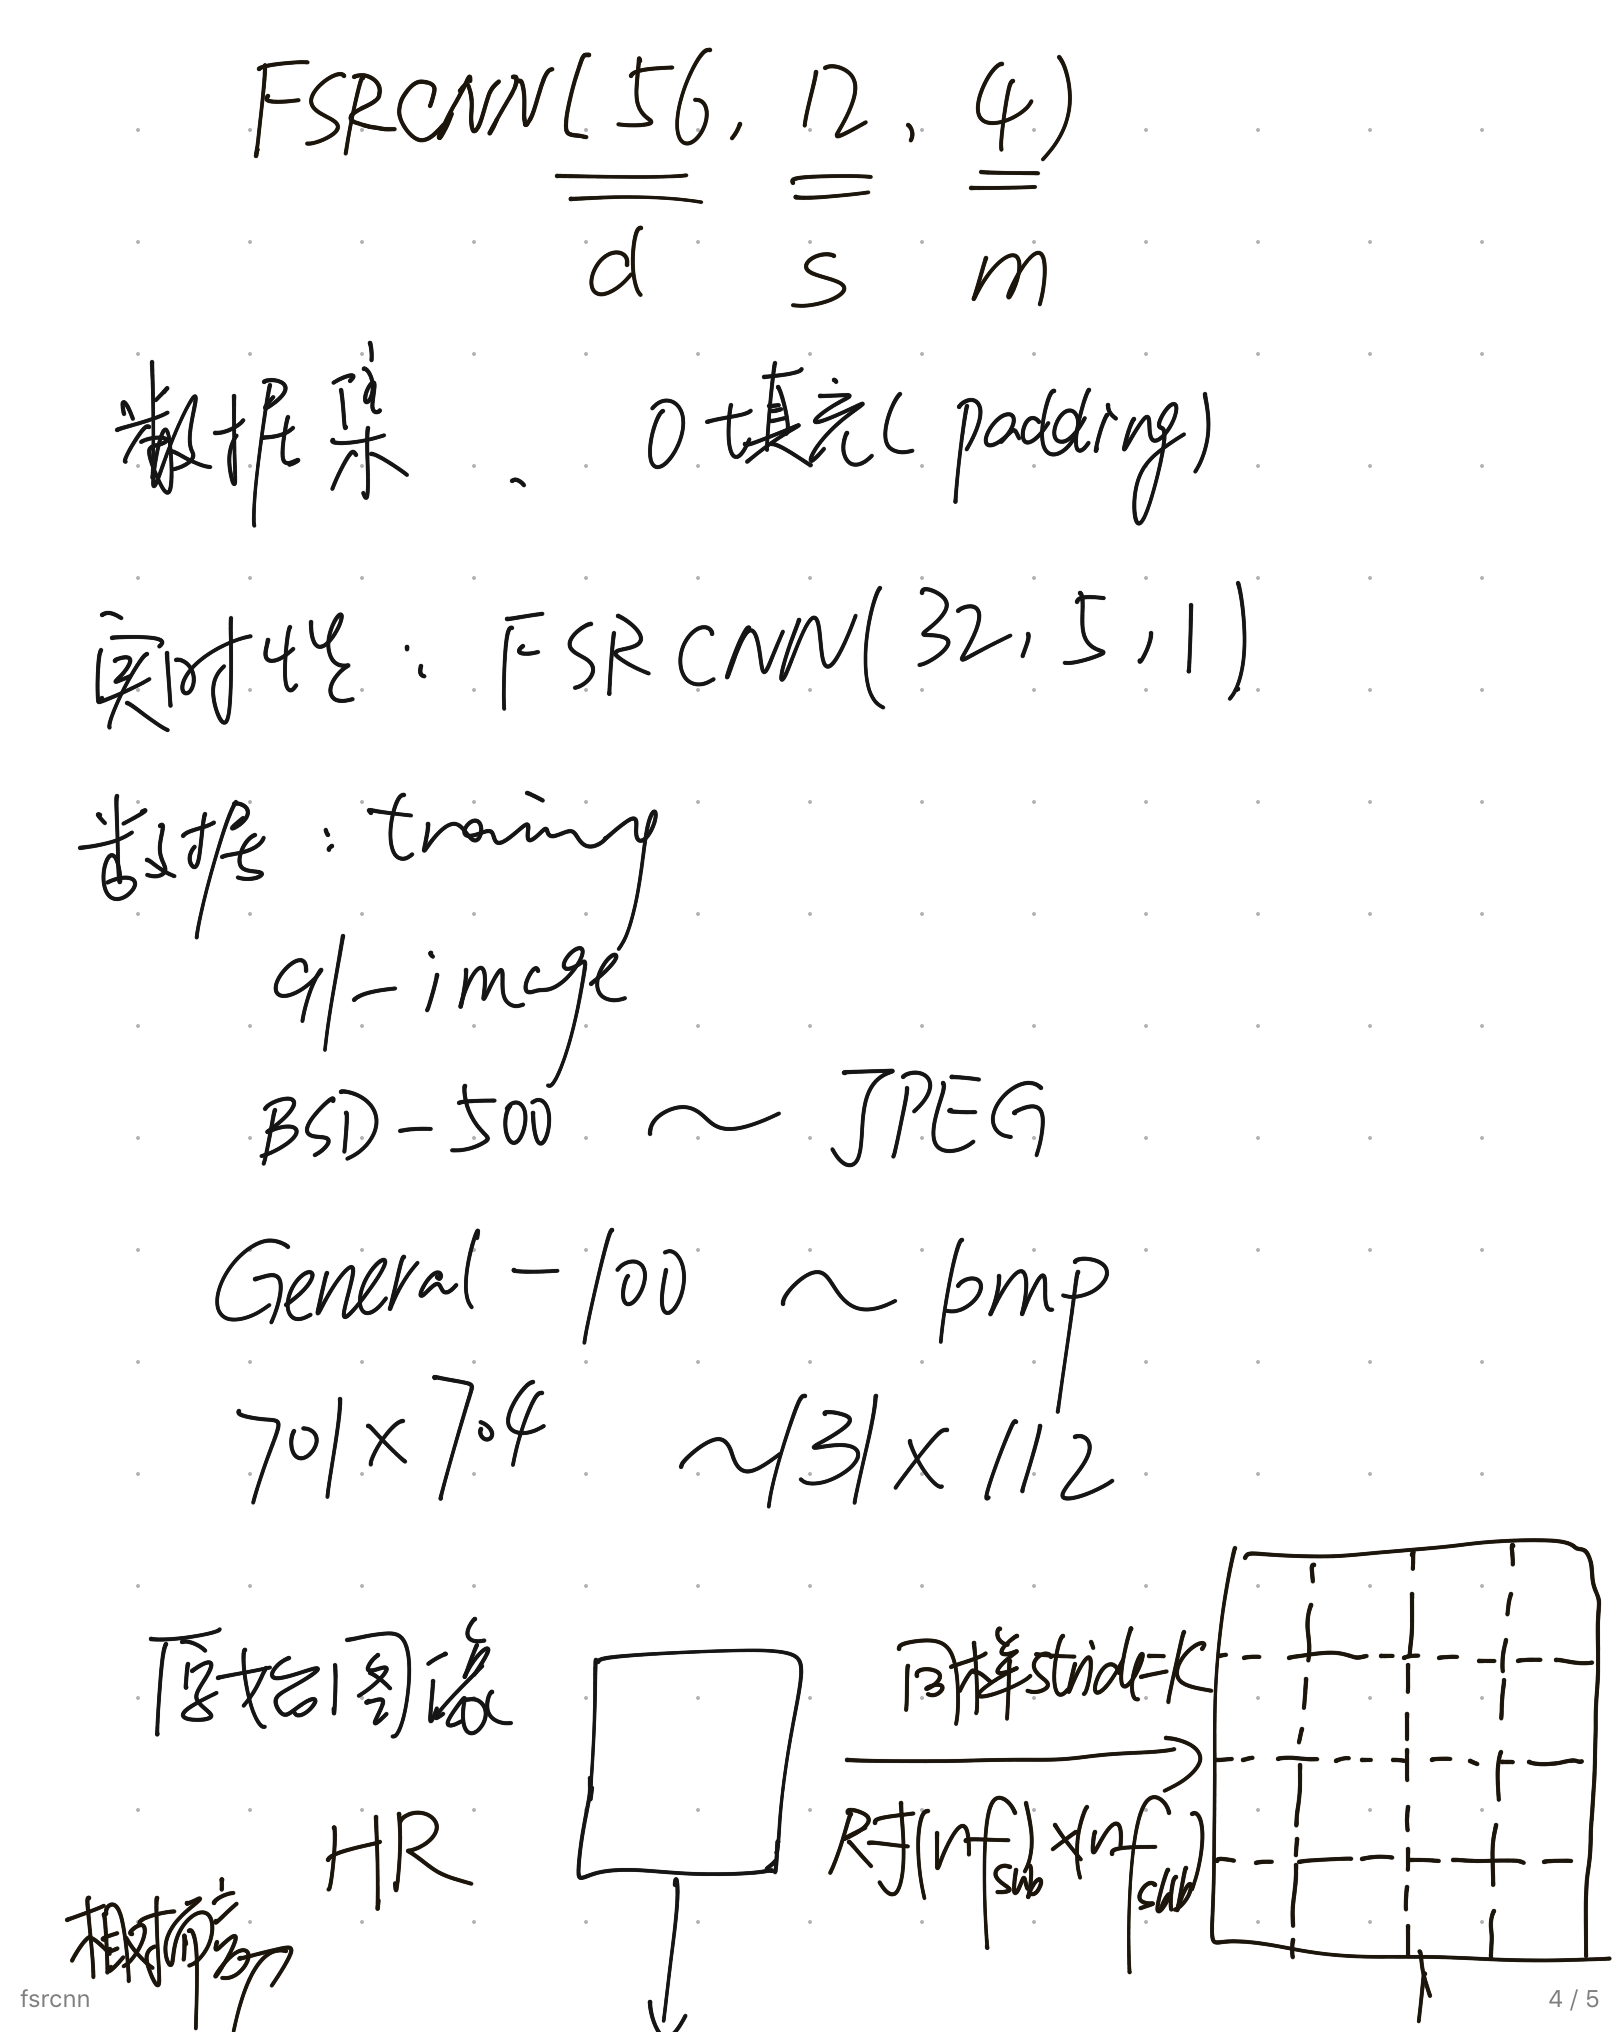 FSRCNN(56, 12, 4)
d s m
数据集 、 0填充(padding)
实时性: FSRCNN(32,5,1)
数据: training
91-image
BSD-500 ~ JPEG
General-100 ~ bmp
701×704 ~131×112
原始图像
HR
stride=K
尺寸(nfsub)×(nfsub)
fsrcnn
4 / 5